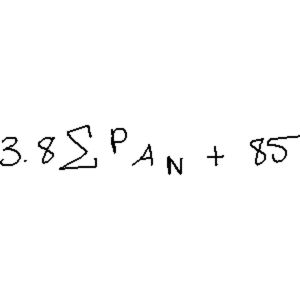 3.8 ∑ P A N + 85